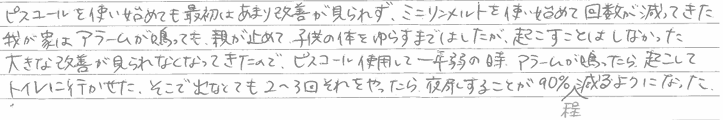 ピスコールを使い始めても最初はあまり改善が見られず、ミニリンメルトを使い始めて回数が減ってきた
我が家はアラームが鳴っても、親が止めて子供の体をゆらすまではしたが、起こすことはしなかった
大きな改善が見られなくなってきたので、ピスコール使用して一年弱の時、アラームが鳴ったら起こして
トイレに行かせた、そこで出なくても2〜3回それをやったら夜尿することが90%程減るようになった。